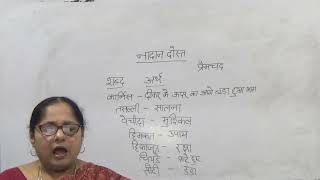 नादान दोस्त
प्रेमचंद
शब्द अर्थ
कार्निस - दीवार के ऊपर का आगे बढ़ा हुआ भाग
तसल्ली - सांत्वना
पेचीदा - मुश्किल
हिकमत - उपाय
हिफाजत - रक्षा
चिथड़े - फटे हुए